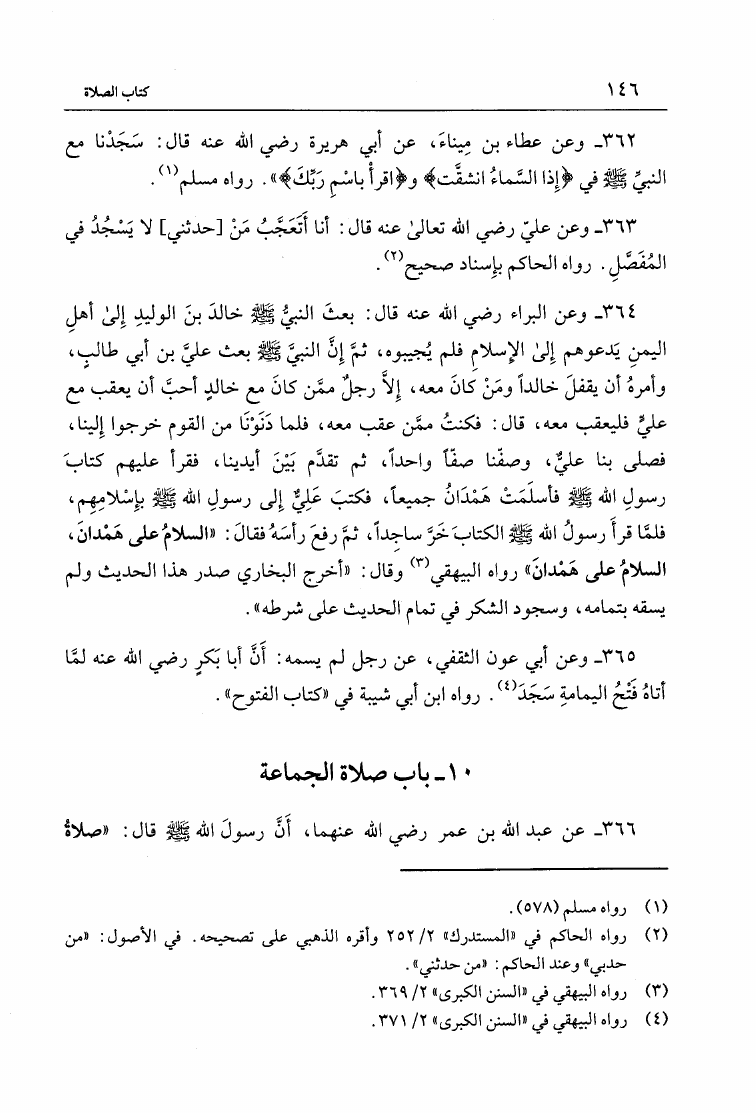 ١٤٦ كتاب الصلاة
٣٦٢ـ وعن عطاء بن مِيناءَ، عن أبي هريرة رضي الله عنه قال: سَجَدْنا مع
النبيِّ ﷺ في ﴿إذا السَّماءُ انشقَّت﴾ و﴿اقرأْ باسْمِ رَبِّكَ﴾». رواه مسلم(١).
٣٦٣ـ وعن عليّ رضي الله تعالىٰ عنه قال: أنا أَتَعَجَّبُ مَنْ [حدثني] لا يَسْجُدُ في
المُفَصَّلِ. رواه الحاكم بإسناد صحيح(٢).
٣٦٤ـ وعن البراء رضي الله عنه قال: بعثَ النبيُّ ﷺ خالدَ بنَ الوليدِ إلىٰ أهلِ
اليمنِ يَدعوهم إلىٰ الإسلامِ فلم يُجيبوه، ثمَّ إنَّ النبيَّ ﷺ بعث عليَّ بن أبي طالبٍ،
وأمرهُ أن يقفلَ خالداً ومَنْ كانَ معه، إلاَّ رجلٌ ممَّن كانَ مع خالدٍ أحبَّ أن يعقب مع
عليٍّ فليعقب معه، قال: فكنتُ ممَّن عقب معه، فلما دَنَوْنَا من القوم خرجوا إلينا،
فصلى بنا عليٌّ، وصفّنا صفّاً واحداً، ثم تقدَّم بَيْنَ أيدينا، فقرأ عليهم كتابَ
رسولِ الله ﷺ فأسلَمَتْ هَمْدَانُ جميعاً، فكتبَ عَلِيٌّ إلى رسولِ الله ﷺ بإسْلامِهِم،
فلمَّا قرأَ رسولُ الله ﷺ الكتابَ خَرَّ ساجِداً، ثمَّ رفعَ رأسَهُ فقالَ: «السلامُ على هَمْدانَ،
السلامُ على هَمْدانَ» رواه البيهقي(٣) وقال: «أخرج البخاري صدر هذا الحديث ولم
يسقه بتمامه، وسجود الشكر في تمام الحديث على شرطه».
٣٦٥ـ وعن أبي عون الثقفي، عن رجل لم يسمه: أَنَّ أبا بَكرٍ رضي الله عنه لمَّا
أتاهُ فَتْحُ اليمامةِ سَجَدَ(٤). رواه ابن أبي شيبة في «كتاب الفتوح».
١٠ـ باب صلاة الجماعة
٣٦٦ـ عن عبد الله بن عمر رضي الله عنهما، أَنَّ رسولَ الله ﷺ قال: «صلاةُ
(١) رواه مسلم (٥٧٨).
(٢) رواه الحاكم في «المستدرك» ٢/ ٢٥٢ وأقره الذهبي على تصحيحه. في الأصول: «من
حدبي» وعند الحاكم: «من حدثني».
(٣) رواه البيهقي في «السنن الكبرى» ٢/ ٣٦٩.
(٤) رواه البيهقي في «السنن الكبرى» ٢/ ٣٧١.